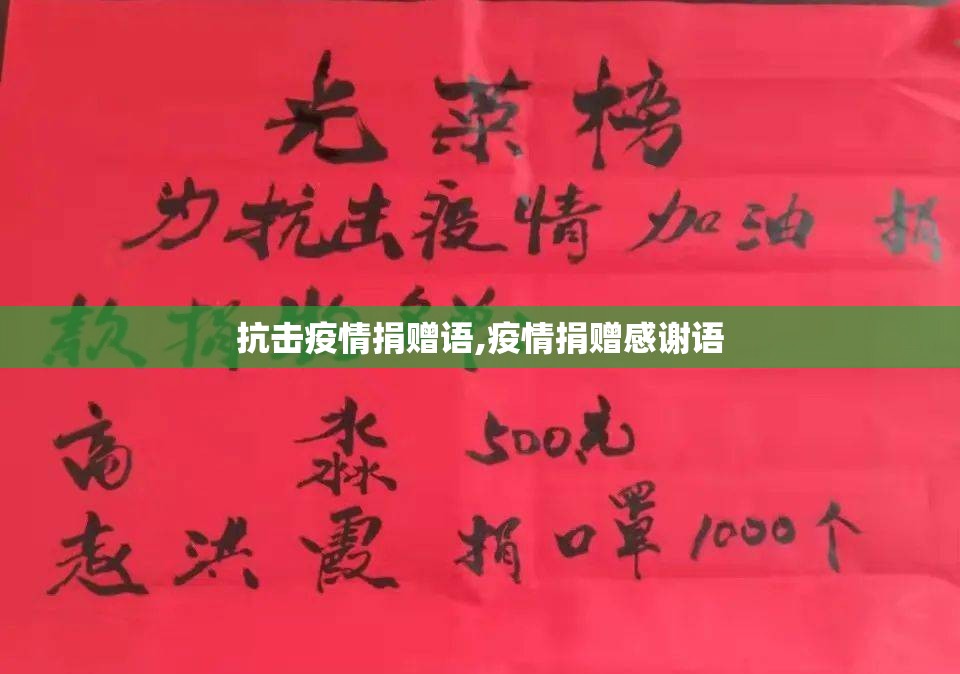 光荣榜
为抗击疫情加油捐
款捐物名单
抗击疫情捐赠语,疫情捐赠感谢语
高 淼 500元
赵洪霞 捐口罩1000个